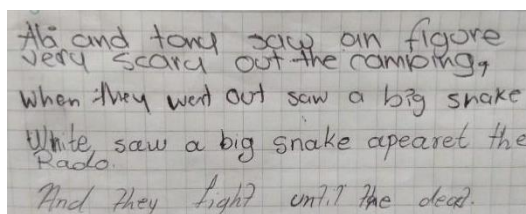 Abi and tony saw an figore
very scary out the camping,
when they went out saw a big snake
White, saw a big snake apearet the
Rado.
And They fight until the dead.